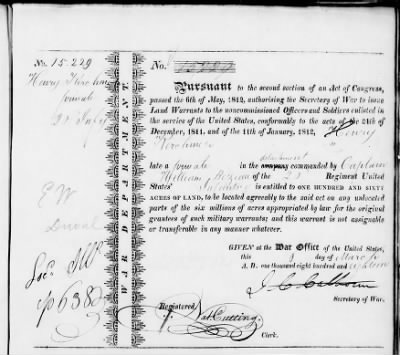 No. 15.229
Henry
private
E W
Duval
WAR DEPARTMENT
No.
Pursuant to the second section of an Act of Congress,
passed the 6th of May, 1812, authorising the Secretary of War to issue
Land Warrants to the noncommissioned Officers and Soldiers enlisted in
the service of the United States, conformably to the acts of the 24th of
December, 1811, and of the 11th of January, 1812, Henry
late a private detachment commanded by Captain
William of the Regiment United
States' Infantry is entitled to ONE HUNDRED AND SIXTY
ACRES OF LAND, to be located agreeably to the said act on any unlocated
parts of the six millions of acres appropriated by law for the original
grantees of such military warrants; and this warrant is not assignable
or transferable in any manner whatever.
GIVEN at the War Office of the United States,
this day of March
A. D. one thousand eight hundred and
J. C. Calhoun
Secretary of War.
Registered
Nat. Cutting
Clerk.